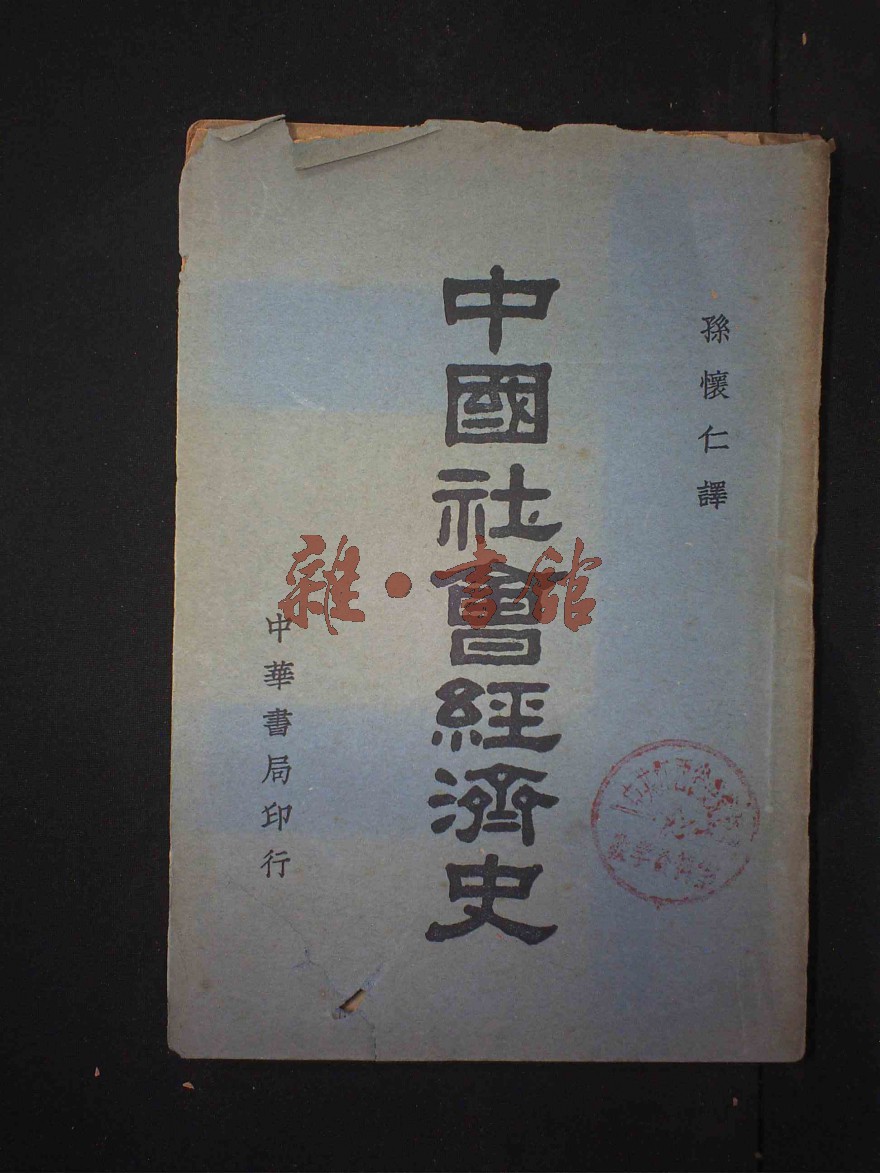 孫懷仁譯
中國社會經濟史
中華書局印行
雜·書館